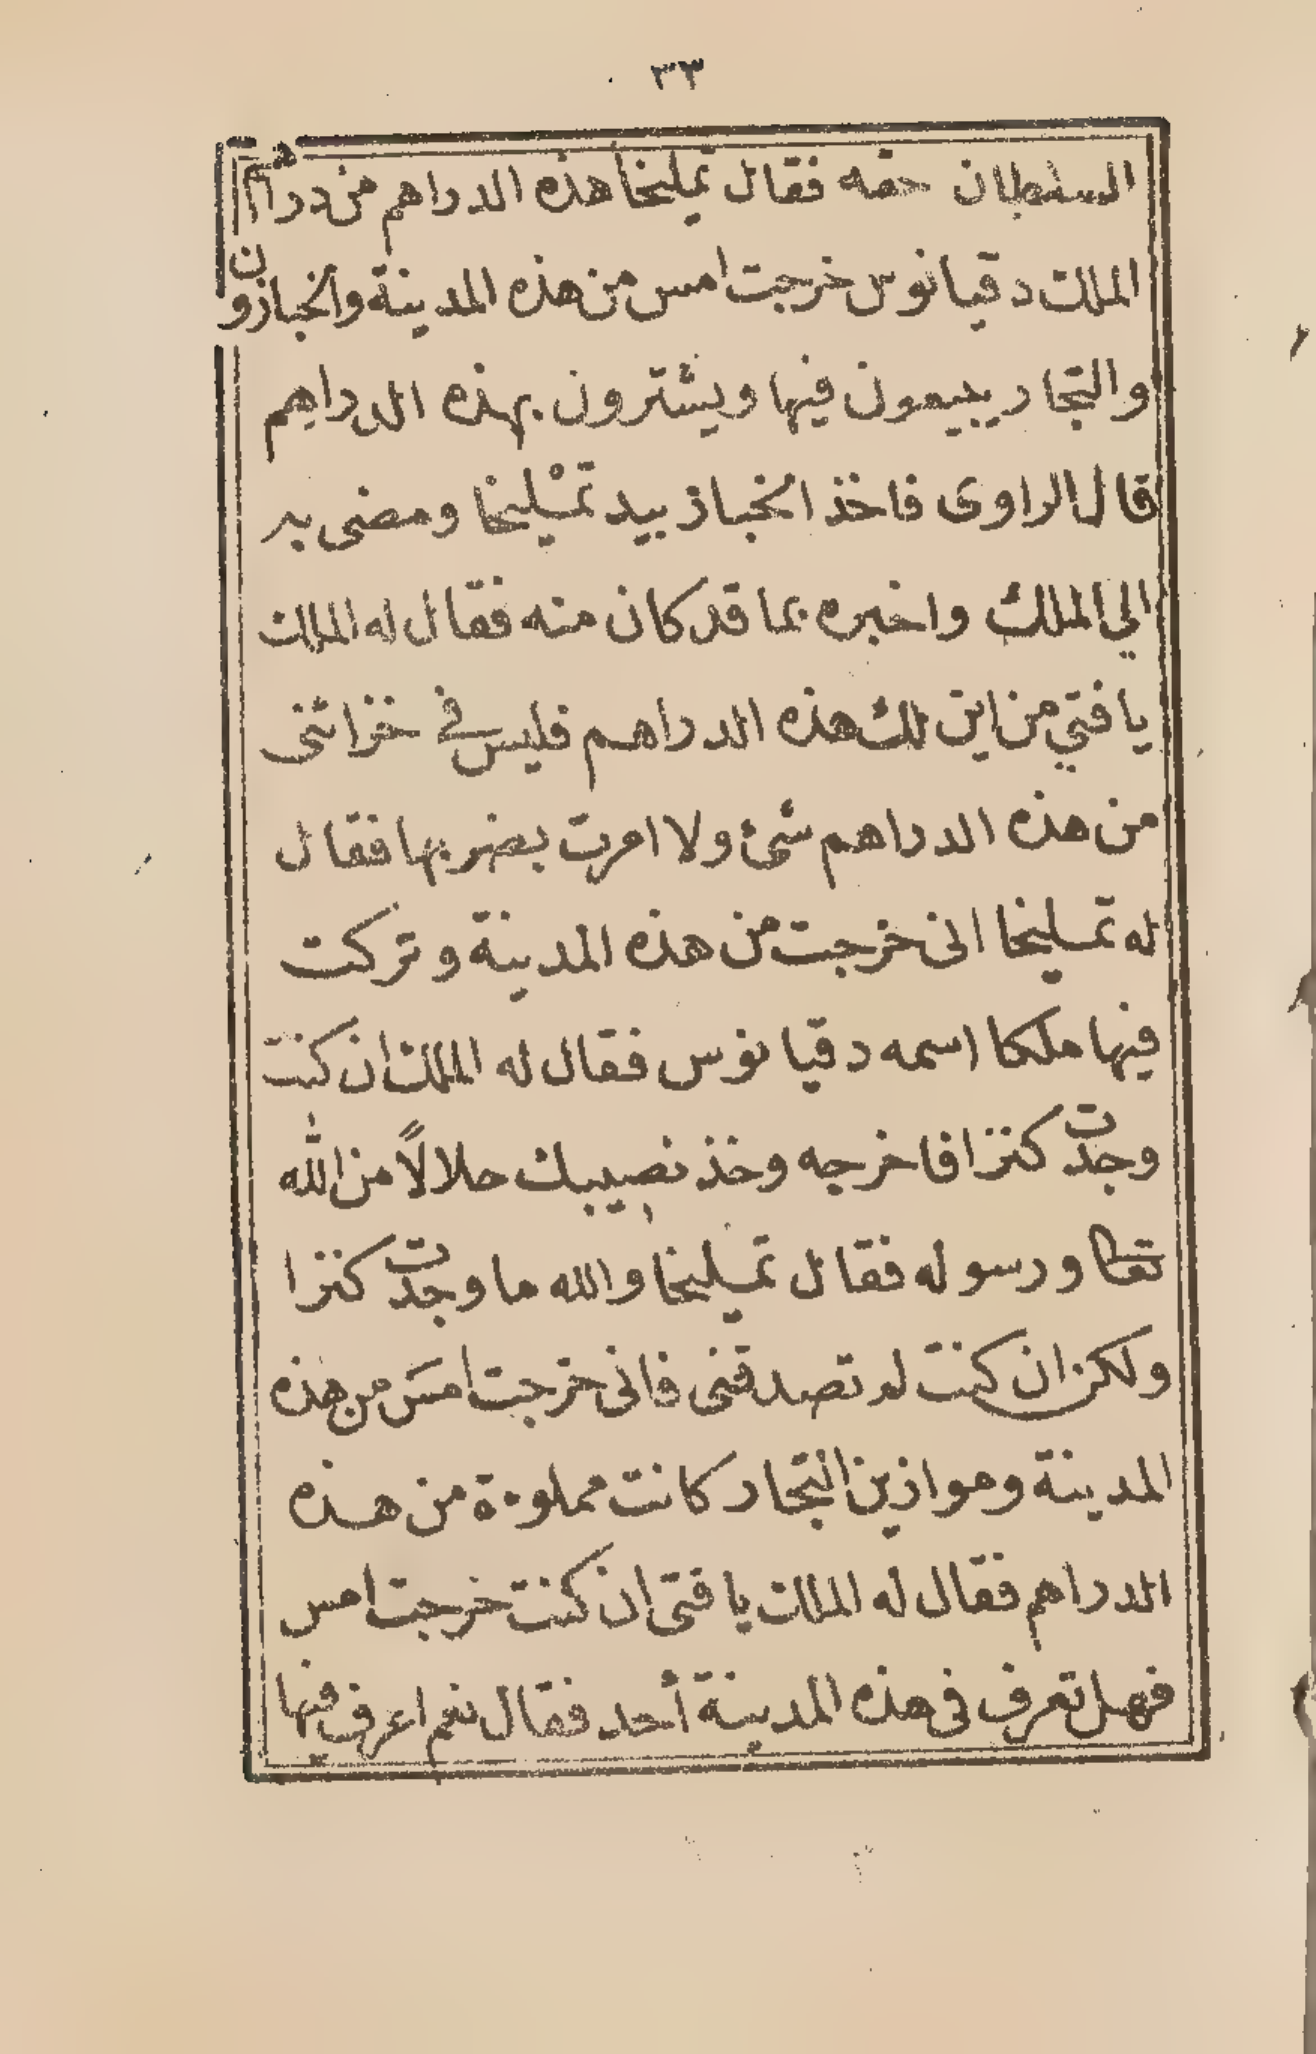 ٣٣
السلطان حقه فقال تمليخا هذه الدراهم من دراهم
الملك دقيانوس خرجت امس من هذه المدينة والخبازون
والتجار يبيعون فيها ويشترون بهذه الدراهم
قال الراوى فاخذ الخباز بيد تمْليخا ومضى به
الي الملك واخبره بما قد كان منه فقال له الملك
يا فتي من اين لك هذه الدراهم فليس في خزائنى
من هذه الدراهم شئ ولا امرت بضربها فقال
له تمليخا انى خرجت من هذه المدينة وتركت
فيها ملكا اسمه دقيانوس فقال له الملك ان كنت
وجدت كنزا فاخرجه وخذ نصيبك حلالاً من الله
تعا ورسوله فقال تمليخا والله ما وجدت كنزا
ولكن ان كنت لم تصدقنى فانى خرجت امس من هذه
المدينة وموازين التجار كانت مملوءة من هذه
الدراهم فقال له الملك يا فتى ان كنت خرجت امس
فهل تعرف فى هذه المدينة أحد فقال نعم اعرف فيها